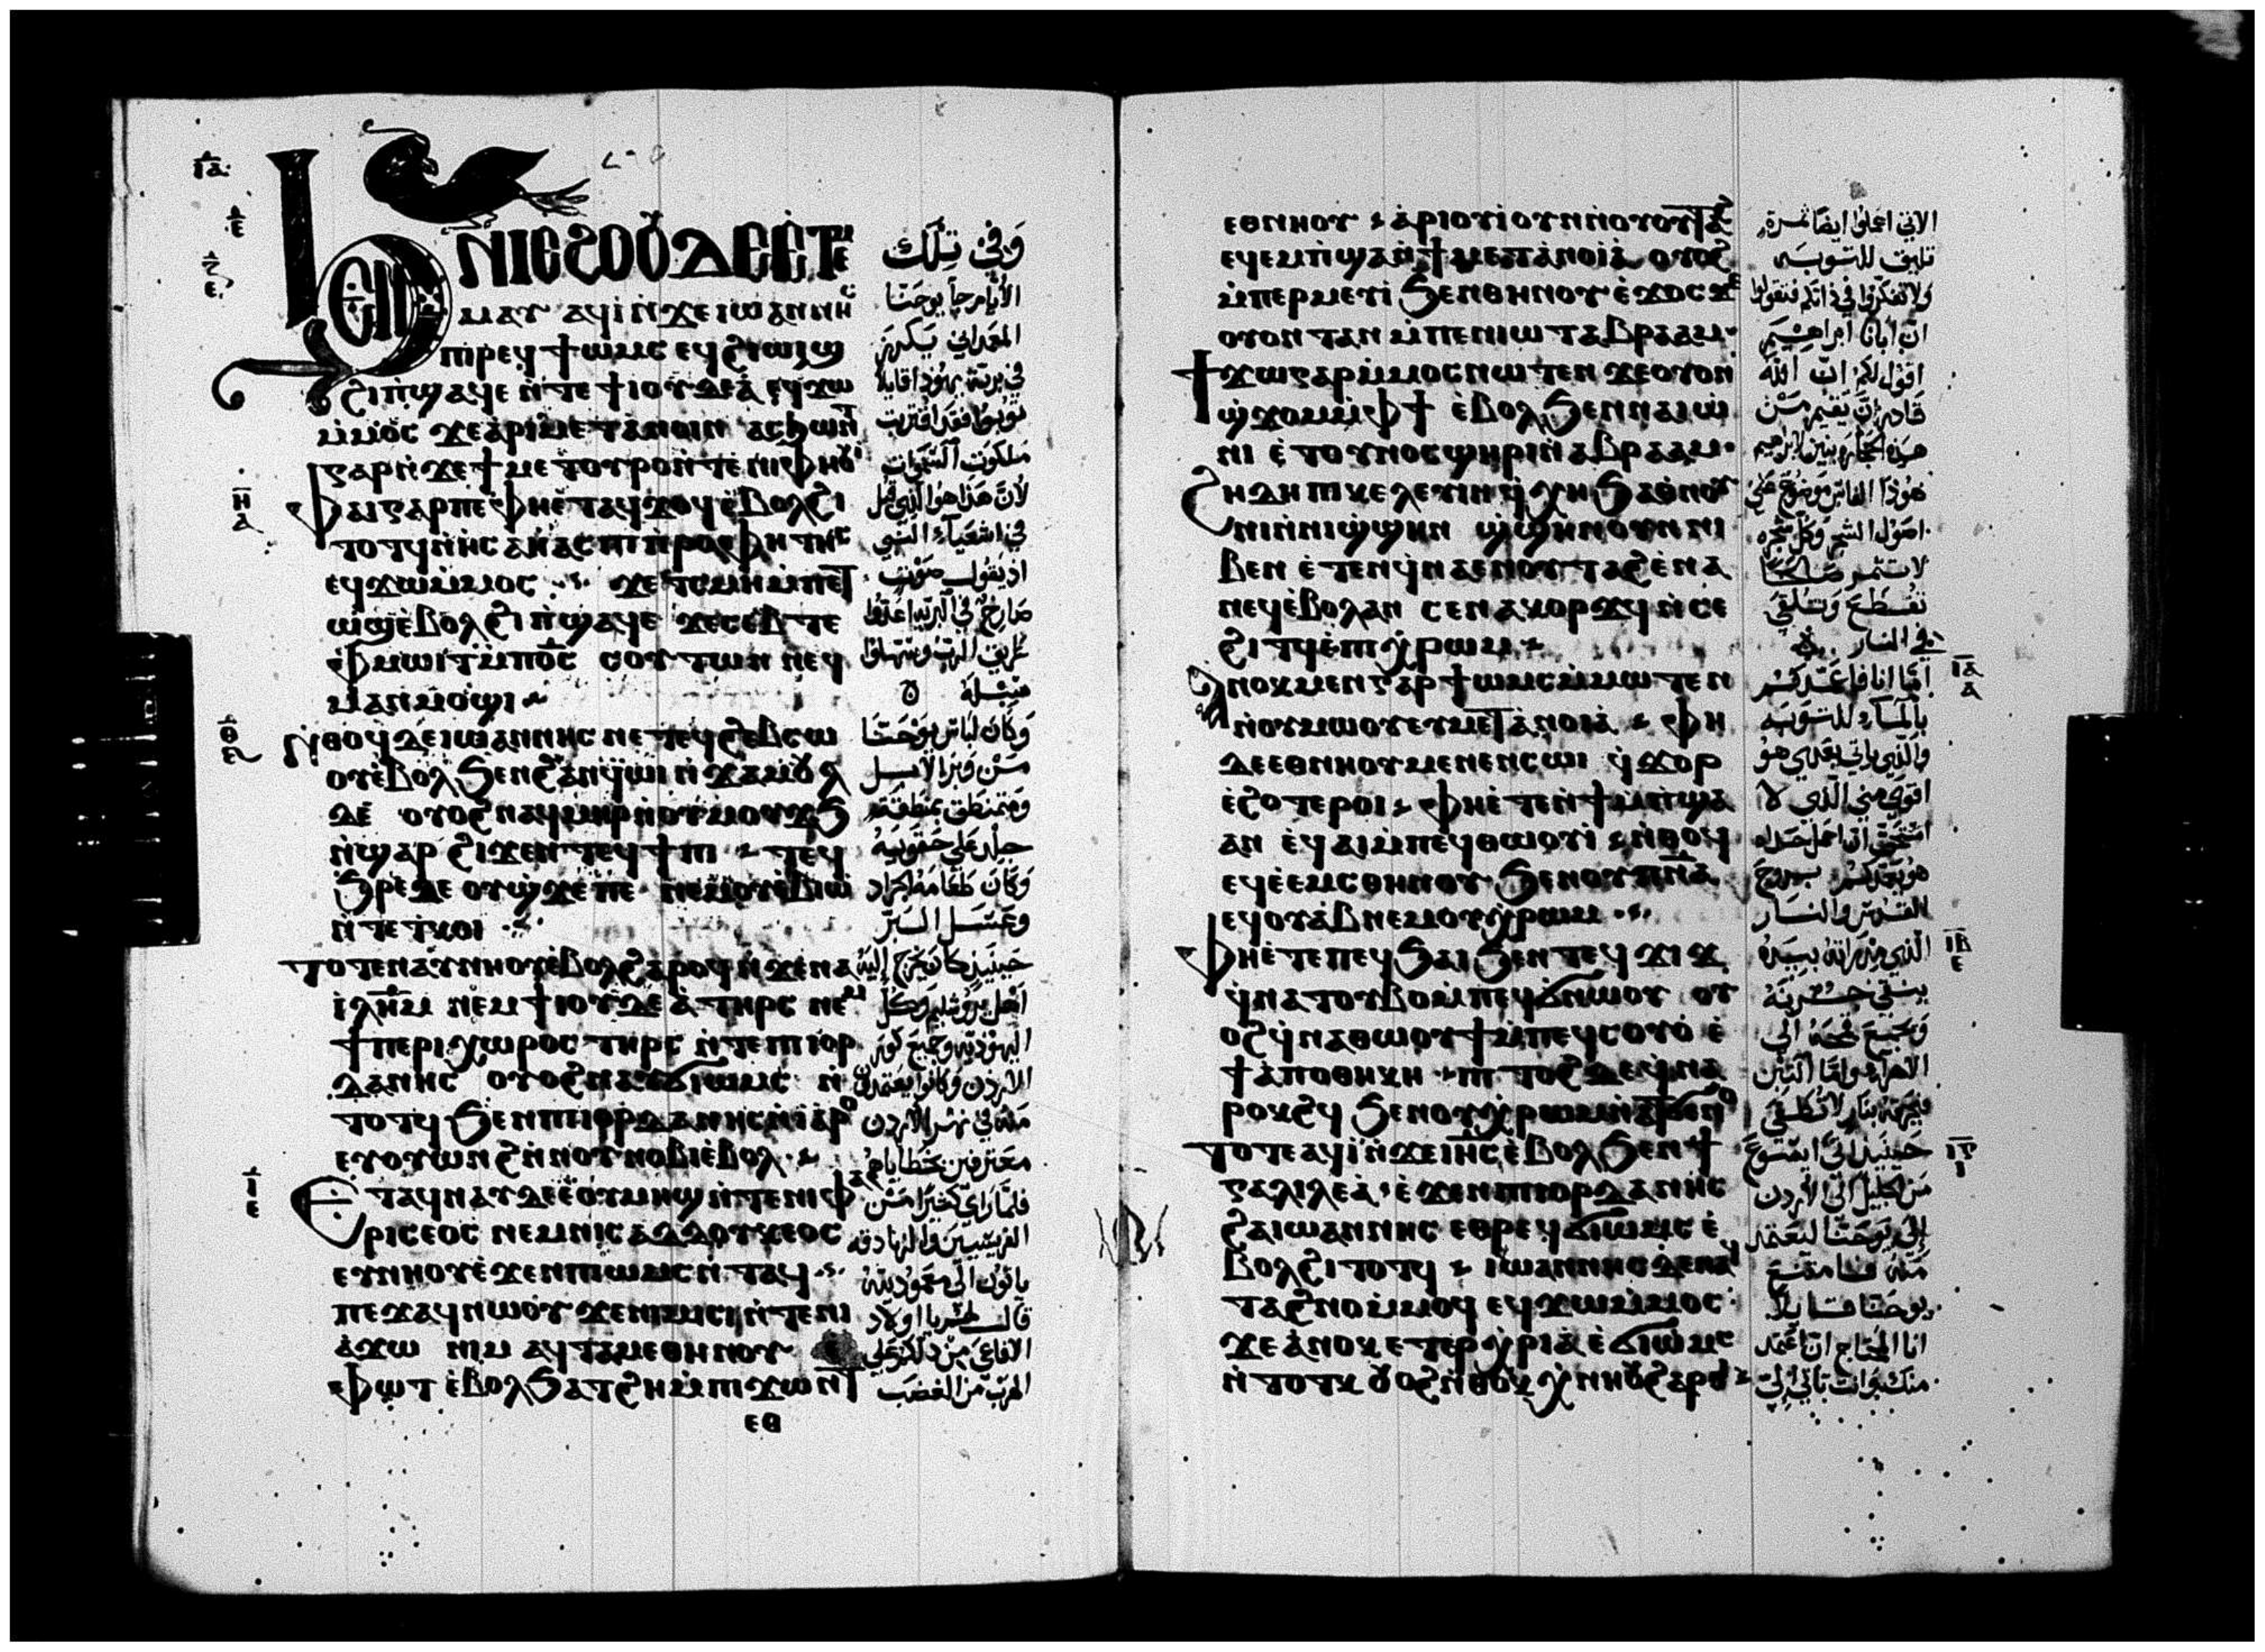 ⲓ︦ⲁ︦
ϧⲉⲛ ⲛⲓⲉϩⲟⲟⲩ ⲇⲉ ⲉⲧⲉ
ⲙⲙⲁⲩ ⲁϥⲓ̀ ⲛ̀ϫⲉ ⲓⲱⲁⲛⲛⲏⲥ
ⲡⲓⲣⲉϥϯⲱⲙⲥ ⲉϥϩⲓⲱⲓϣ
ϩⲓ ⲡ̀ϣⲁϥⲉ ⲛ̀ⲧⲉ ϯⲓⲟⲩⲇⲉⲁ̀ ⲉϥϫⲱ
ⲙ̀ⲙⲟⲥ ϫⲉ ⲁ̀ⲣⲓⲙⲉⲧⲁⲛⲟⲓⲛ ⲁⲥϧⲱⲛⲧ
ⲅⲁⲣ ⲛ̀ϫⲉ ϯⲙⲉⲧⲟⲩⲣⲟ ⲛ̀ⲧⲉ ⲛⲓⲫⲏⲟⲩⲓ̀
ⲫⲁⲓ ⲅⲁⲣ ⲡⲉ ⲫⲏⲉ̀ⲧⲁϥϫⲟϥ ⲉ̀ⲃⲟⲗϩⲓ
ⲧⲟⲧϥ ⲛ̀ⲏⲥⲁⲏⲁⲥ ⲡⲓⲡ̀ⲣⲟⲫⲏⲧⲏⲥ
ⲉϥϫⲱⲙ̀ⲙⲟⲥ ϫⲉ ⲧ̀ⲥⲙⲏ ⲙ̀ⲡⲉⲧ
ⲱϣ ⲉ̀ⲃⲟⲗϩⲓ ⲡ̀ϣⲁϥⲉ ϫⲉ ⲥⲉⲃⲧⲉ
ⲫ̀ⲙⲱⲓⲧ ⲙ̀ⲡⲟ̅ⲥ̅ ⲥⲟⲩⲧⲱⲛ ⲛⲉϥ
ⲙⲁⲛⲙⲟϣⲓ
ⲛ̀ⲑⲟϥ ⲇⲉ ⲓⲱⲁⲛⲛⲏⲥ ⲛⲉ ⲧⲉϥϩⲉⲃⲥⲱ
ⲟⲩⲉ̀ⲃⲟⲗ ϧⲉⲛ ϩⲁⲛϥⲱⲓ ⲛ̀ϫⲁⲙⲟⲩⲗ
ⲇⲉ ⲟⲩⲟϩ ⲛⲁϥⲙⲏⲣ ⲛ̀ⲟⲩⲙⲟⲩϫϧ
ⲛ̀ϣⲁⲣ ϩⲓϫⲉⲛ ⲧⲉϥϯⲡⲓ ⲧⲉϥ
ϧⲣⲉ ⲇⲉ ⲟⲩϣ̀ϫⲉ ⲡⲉ ⲛⲉⲙ ⲟⲩⲉ̀ⲃⲓⲱ
ⲛ̀ⲧⲉ ⲧⲕⲟⲓ
ⲧⲟⲧⲉ ⲛⲁⲩⲛⲏⲟⲩ ⲉ̀ⲃⲟⲗ ϩⲁⲣⲟϥ ⲛ̀ϫⲉ ⲛⲁ
ⲓⲗⲏ̅ⲙ ⲛⲉⲙ ϯⲓⲟⲩⲇⲉⲁ̀ ⲧⲏⲣⲥ ⲛⲉⲙ
ϯⲡⲉⲣⲓⲭⲱⲣⲟⲥ ⲧⲏⲣⲥ ⲛ̀ⲧⲉ ⲡⲓⲓⲟⲣ
ⲇⲁⲛⲏⲥ ⲟⲩⲟϩ ⲛⲁⲩϭⲓⲱⲙⲥ ⲛ̀
ⲧⲟⲧϥ ϧⲉⲛ ⲡⲓⲓⲟⲣⲇⲁⲛⲏⲥ ⲛ̀ⲓⲁⲣⲟ
ⲉⲩⲟⲩⲱⲛϩ ⲛ̀ⲛⲟⲩⲛⲟⲃⲓ ⲉ̀ⲃⲟⲗ
ⲉⲧⲁϥⲛⲁⲩ ⲇⲉ ⲉ̀ⲟⲩⲙⲏϣ ⲛ̀ⲧⲉ ⲛⲓⲫⲁ
ⲣⲓⲥⲉⲟⲥ ⲛⲉⲙ ⲛⲓⲥⲁⲇⲇⲟⲩⲕⲉⲟⲥ
ⲉⲩⲛⲏⲟⲩ ⲉ̀ϫⲉⲛ ⲡⲓⲱⲙⲥ ⲛ̀ⲧⲁϥ
ⲡⲉϫⲁϥ ⲛⲱⲟⲩ ϫⲉ ⲛⲓⲙⲓⲥⲓ ⲛ̀ⲧⲉ ⲛⲓ
ⲁ̀ϫⲱ ⲛⲓⲙ ⲁϥⲧⲁⲙⲉ ⲑⲏⲛⲟⲩ ⲉ̀
ⲫⲱⲧ ⲉ̀ⲃⲟⲗ ϧⲁ ⲧϩⲏ ⲙ̀ⲡⲓϫⲱⲛⲧ
ⲉⲑ
وفي تلك
الأيام جاء يوحنا
المعمداني يكرز
في برية يهودا قايلا
توبوا فقد اقتربت
ملكوت السموات
لان هذا هو الذي قيل
في اشعياء النبي
اذ يقول صوت
صارخ في البرية اعدوا
طريق الرب وسهلوا
سبله
وكان لباس يوحنا
من وبر الابل
ومتمنطق بمنطقة
جلد على حقويه
وكان طعامه الجراد
وعسل البر
حينيذ كان يخرج اليه
اهل يروشليم وكل
اليهودية وجميع كور
الاردن وكانوا يعتمدون
منه في نهر الاردن
معترفين بخطاياهم
فلما راى كثيرا من
الفريسيين والزنادقة
ياتون الى معموديته
قال لهم يا اولاد
الافاعي من دلكم على
الهرب من الغضب
ⲉⲑⲛⲏⲟⲩ ⲁ̀ⲣⲓⲟⲩⲓ̀ ⲟⲩⲛ ⲛ̀ⲟⲩⲟⲩⲧⲁϩ
ⲉϥⲉⲙⲡ̀ϣⲁ ⲛ̀ϯⲙⲉⲧⲁⲛⲟⲓⲁ̀ ⲟⲩⲟϩ
ⲙ̀ⲡⲉⲣⲙⲉⲩⲓ̀ ϧⲉⲛ ⲑⲏⲛⲟⲩ ⲉ̀ϫⲟⲥ ϫⲉ
ⲟⲩⲟⲛⲧⲁⲛ ⲙ̀ⲡⲉⲛⲓⲱⲧ ⲁⲃⲣⲁⲁⲙ
ϯϫⲱ ⲅⲁⲣ ⲙ̀ⲙⲟⲥ ⲛⲱⲧⲉⲛ ϫⲉ ⲟⲩⲟⲛ
ϣ̀ϫⲟⲙ ⲙ̀ⲫϯ ⲉ̀ⲃⲟⲗ ϧⲉⲛ ⲛⲁⲓⲱ̀
ⲛⲓ ⲉ̀ⲧⲟⲩⲛⲟⲥ ϣⲏⲣⲓ ⲛ̀ⲁⲃⲣⲁⲁⲙ
ϩⲏⲇⲏ ⲡⲓⲕⲉⲗⲉⲃⲓⲛ ϥ̀ⲭⲏ ϧⲁ ⲑⲛⲟⲩ
ⲛⲓ ⲛ̀ⲛⲓϣ̀ϣⲏⲛ ϣ̀ϣⲏⲛ ⲟⲩⲛ ⲛⲓ
ⲃⲉⲛ ⲉ̀ⲧⲉⲛϥ̀ⲛⲁⲉⲛⲟⲩⲧⲁϩ ⲉ̀ⲛⲁ
ⲛⲉϥ ⲉ̀ⲃⲟⲗ ⲁⲛ ⲥⲉⲛⲁⲕⲟⲣϫϥ ⲛ̀ⲥⲉ
ϩⲓⲧϥ ⲉ̀ⲡⲓⲭ̀ⲣⲱⲙ
ⲁⲛⲟⲕ ⲙⲉⲛ ⲅⲁⲣ ϯⲱⲙⲥ ⲙ̀ⲙⲱⲧⲉⲛ
ⲛ̀ⲟⲩⲙⲱⲟⲩ ⲉⲩⲙⲉⲧⲁⲛⲟⲓⲁ̀ ⲫⲏ
ⲇⲉ ⲉⲑⲛⲏⲟⲩ ⲙⲉⲛⲉⲛⲥⲱⲓ ϥ̀ϫⲟⲣ
ⲉ̀ϩⲟⲧⲉⲣⲟⲓ ⲫⲏⲉ̀ⲧⲉⲛϯⲙ̀ⲡ̀ϣⲁ
ⲁⲛ ⲉ̀ϥⲁⲓ ⲙ̀ⲡⲉϥⲑⲱⲟⲩⲓ̀ ⲛ̀ⲑⲟϥ
ⲉϥⲉ̀ⲉⲙⲥ ⲑⲏⲛⲟⲩ ϧⲉⲛ ⲟⲩⲡⲛ̅ⲁ̅
ⲉϥⲟⲩⲁⲃ ⲛⲉⲙ ⲟⲩⲭ̀ⲣⲱⲙ
ⲫⲏⲉ̀ⲧⲉ ⲡⲉϥϧⲁⲓ ϧⲉⲛ ⲧⲉϥϫⲓϫ
ϥ̀ⲛⲁⲧⲟⲩⲃⲟ ⲙ̀ⲡⲉϥϭⲛⲱⲟⲩ ⲟⲩ
ⲟϩ ϥ̀ⲛⲁⲑⲱⲟⲩϯ ⲙ̀ⲡⲉϥⲥⲟⲩⲟ̀ ⲉ̀
ϯⲁⲡⲟⲑⲏⲕⲏ ⲡⲓⲧⲟϩ ⲇⲉ ϥ̀ⲛⲁ
ⲣⲟⲕϩϥ ϧⲉⲛ ⲟⲩⲭ̀ⲣⲱⲙ ⲛ̀ⲁⲧϭⲉⲛⲟ
ⲧⲟⲧⲉ ⲁϥⲓ̀ ⲛ̀ϫⲉ ⲓⲏ̅ⲥ̅ ⲉ̀ⲃⲟⲗ ϧⲉⲛ ϯ
ⲅⲁⲗⲓⲗⲉⲁ̀ ⲉ̀ϫⲉⲛ ⲡⲓⲓⲟⲣⲇⲁⲛⲏⲥ
ϩⲁ ⲓⲱⲁⲛⲛⲏⲥ ⲉⲑⲣⲉϥϭⲓⲱⲙⲥ ⲉ̀
ⲃⲟⲗϩⲓⲧⲟⲧϥ ⲓⲱⲁⲛⲛⲏⲥ ⲇⲉ ⲛⲁϥ
ⲧⲁϩⲛⲟ ⲙ̀ⲙⲟϥ ⲉϥϫⲱ ⲙ̀ⲙⲟⲥ
ϫⲉ ⲁ̀ⲛⲟⲕ ⲉⲧⲉⲣⲭ̀ⲣⲓⲁ̀ ⲉ̀ϭⲓⲱⲙⲥ
ⲛ̀ⲧⲟⲧⲕ ⲟⲩⲟϩ ⲛ̀ⲑⲟⲕ ⲭ̀ⲛⲏⲟⲩ ϩⲁⲣⲟⲓ
الاتي اعملوا ايضا ثمرة
تليق للتوبه
ولا تفكروا في ذاتكم فتقولوا
ان ابانا ابراهيم
اقول لكم ان الله
قادر ان يقيم من
هذه الحجارة بنين لابراهيم
هوذا الفاس موضوع على
اصول الشجر وكل شجرة
لا تثمر صالحا
تقطع وتلقى
في النار
اما انا فاعمدكم
بالماء للتوبه
والذي ياتي بعدي هو
اقوى مني الذي لا
استحق ان احمل حذاه
هو يعمدكم بروح
القدس والنار
الذي مذراته بيده
ينقي
ويجمع قمحه الى
الاهراء واما التبن
فيحرقه بنار لا تطفى
حينيذ اتى ايسوع
من الجليل الى الاردن
الى يوحنا ليعتمد
منه
يوحنا قايلا
انا المحتاج ان اعتمد
منك وانت تاتي الي